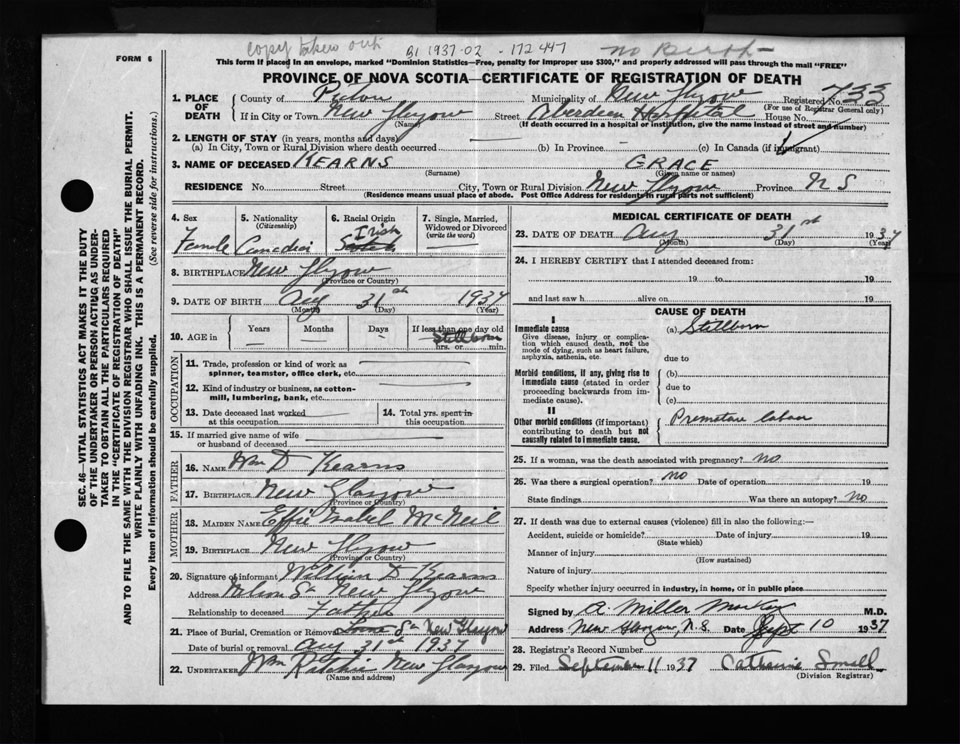 copy taken out B1 1937-02 - 172447 no Birth
FORM 6
This form if placed in an envelope, marked "Dominion Statistics—Free, penalty for improper use $300," and properly addressed will pass through the mail "FREE"
PROVINCE OF NOVA SCOTIA—CERTIFICATE OF REGISTRATION OF DEATH
1. PLACE OF DEATH
County of Pictou Municipality of New Glasgow Registered No. 733
(For use of Registrar General only)
If in City or Town New Glasgow Street Aberdeen Hospital House No.
(Name) (If death occurred in a hospital or institution, give the name instead of street and number)
2. LENGTH OF STAY (in years, months and days)
(a) In City, Town or Rural Division where death occurred (b) In Province - (c) In Canada (if immigrant)
3. NAME OF DECEASED KEARNS GRACE
(Surname) (Given name or names)
RESIDENCE No. Street City, Town or Rural Division New Glasgow Province N S
(Residence means usual place of abode. Post Office Address for residents in rural parts not sufficient)
4. Sex 5. Nationality (Citizenship) 6. Racial Origin 7. Single, Married, Widowed or Divorced (write the word)
Female Canadian Irish Scotch
8. BIRTHPLACE New Glasgow
(Province or Country)
9. DATE OF BIRTH Aug 31st 1937
(Month) (Day) (Year)
10. AGE in Years Months Days If less than one day old
Stillborn
hrs. or min.
OCCUPATION
11. Trade, profession or kind of work as spinner, teamster, office clerk, etc.
12. Kind of industry or business, as cotton-mill, lumbering, bank, etc.
13. Date deceased last worked at this occupation 14. Total yrs. spent in this occupation
15. If married give name of wife or husband of deceased
FATHER
16. NAME Wm D Kearns
17. BIRTHPLACE New Glasgow
(Province or Country)
MOTHER
18. MAIDEN NAME Effie Isabel McNeil
19. BIRTHPLACE New Glasgow
(Province or Country)
20. Signature of informant William D Kearns
Address Nelson St New Glasgow
Relationship to deceased Father
21. Place of Burial, Cremation or Removal St New Glasgow
Date of burial or removal Aug 31st 1937
22. UNDERTAKER Wm Ritchie New Glasgow
(Name and address)
MEDICAL CERTIFICATE OF DEATH
23. DATE OF DEATH Aug 31st 1937
(Month) (Day) (Year)
24. I HEREBY CERTIFY that I attended deceased from:
19 to 19
and last saw h alive on 19
CAUSE OF DEATH
I
Immediate cause (a) Stillborn
Give disease, injury or complication which caused death, not the mode of dying, such as heart failure, asphyxia, asthenia, etc.
due to
Morbid conditions, if any, giving rise to immediate cause (stated in order proceeding backwards from immediate cause).
(b)
due to
(c)
II
Other morbid conditions (if important) contributing to death but not causally related to immediate cause.
Premature labor
25. If a woman, was the death associated with pregnancy? no
26. Was there a surgical operation? no Date of operation 19
State findings Was there an autopsy? no
27. If death was due to external causes (violence) fill in also the following:—
Accident, suicide or homicide? Date of injury 19
(State which)
Manner of injury
(How sustained)
Nature of injury
Specify whether injury occurred in industry, in home, or in public place
Signed by A. Miller MacKay M.D.
Address New Glasgow, N.S. Date Sept 10 1937
28. Registrar's Record Number
29. Filed September 11 1937 Catherine Small
(Division Registrar)
SEC. 46—VITAL STATISTICS ACT MAKES IT THE DUTY
OF THE UNDERTAKER OR PERSON ACTING AS UNDER-
TAKER TO OBTAIN ALL THE PARTICULARS REQUIRED
IN THE "CERTIFICATE OF REGISTRATION OF DEATH"
AND TO FILE THE SAME WITH THE DIVISION REGISTRAR WHO SHALL ISSUE THE BURIAL PERMIT.
WRITE PLAINLY WITH UNFADING INK. THIS IS A PERMANENT RECORD.
Every item of information should be carefully supplied. (See reverse side for instructions.)